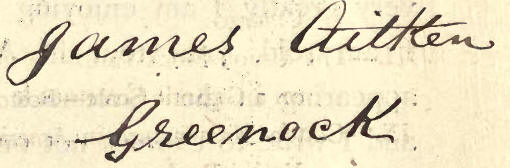 James Aitken
Greenock